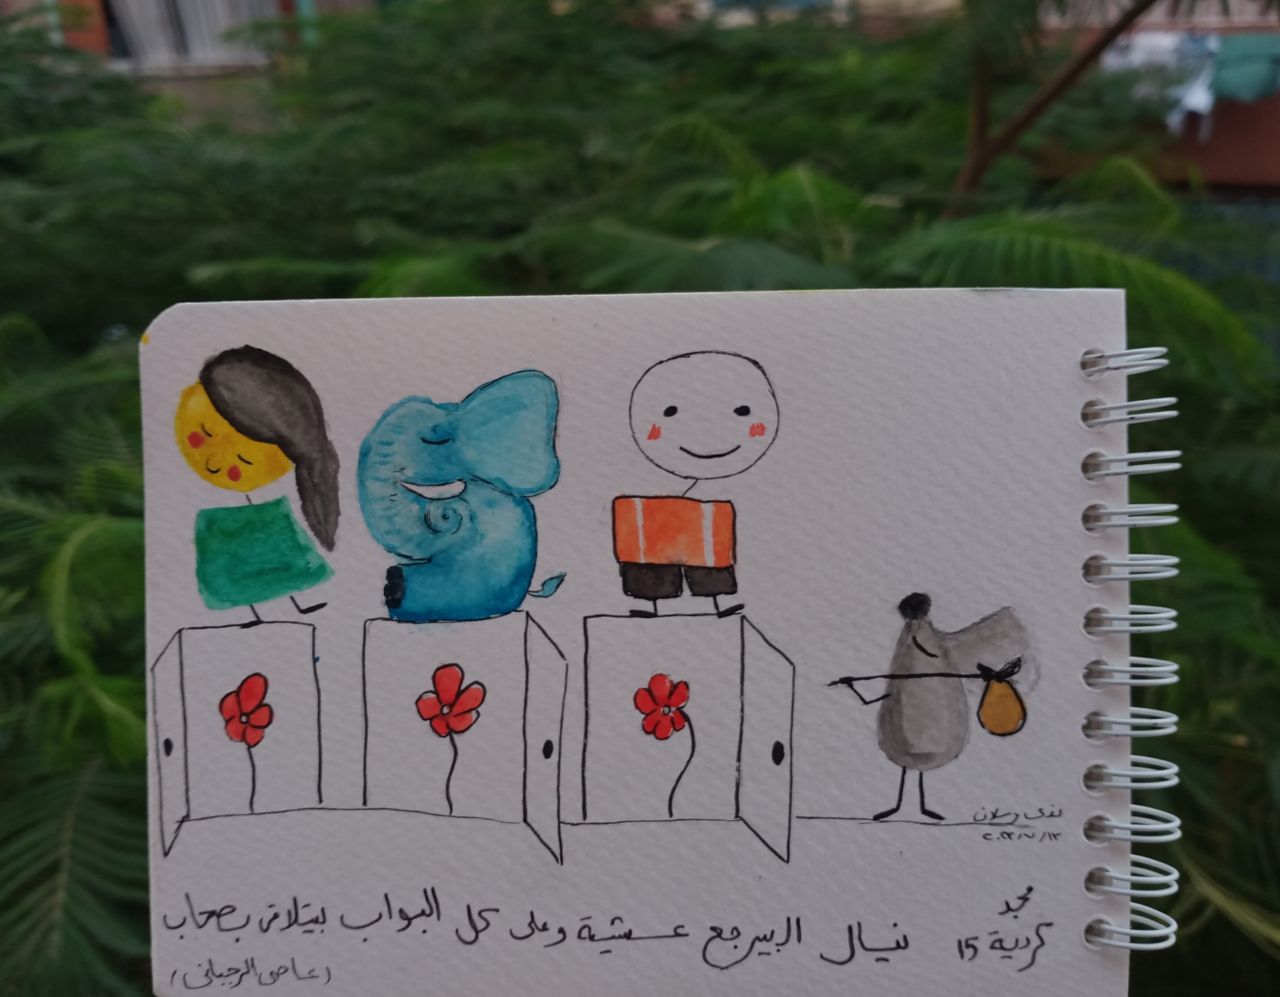 ندى رسلان
٢٠٢٣/٧/١٣
مجد
كردية 15
نيسال البيرجع عـشية وعلى كل البواب بيتلاقى بصحاب
(عاصي الرحباني)